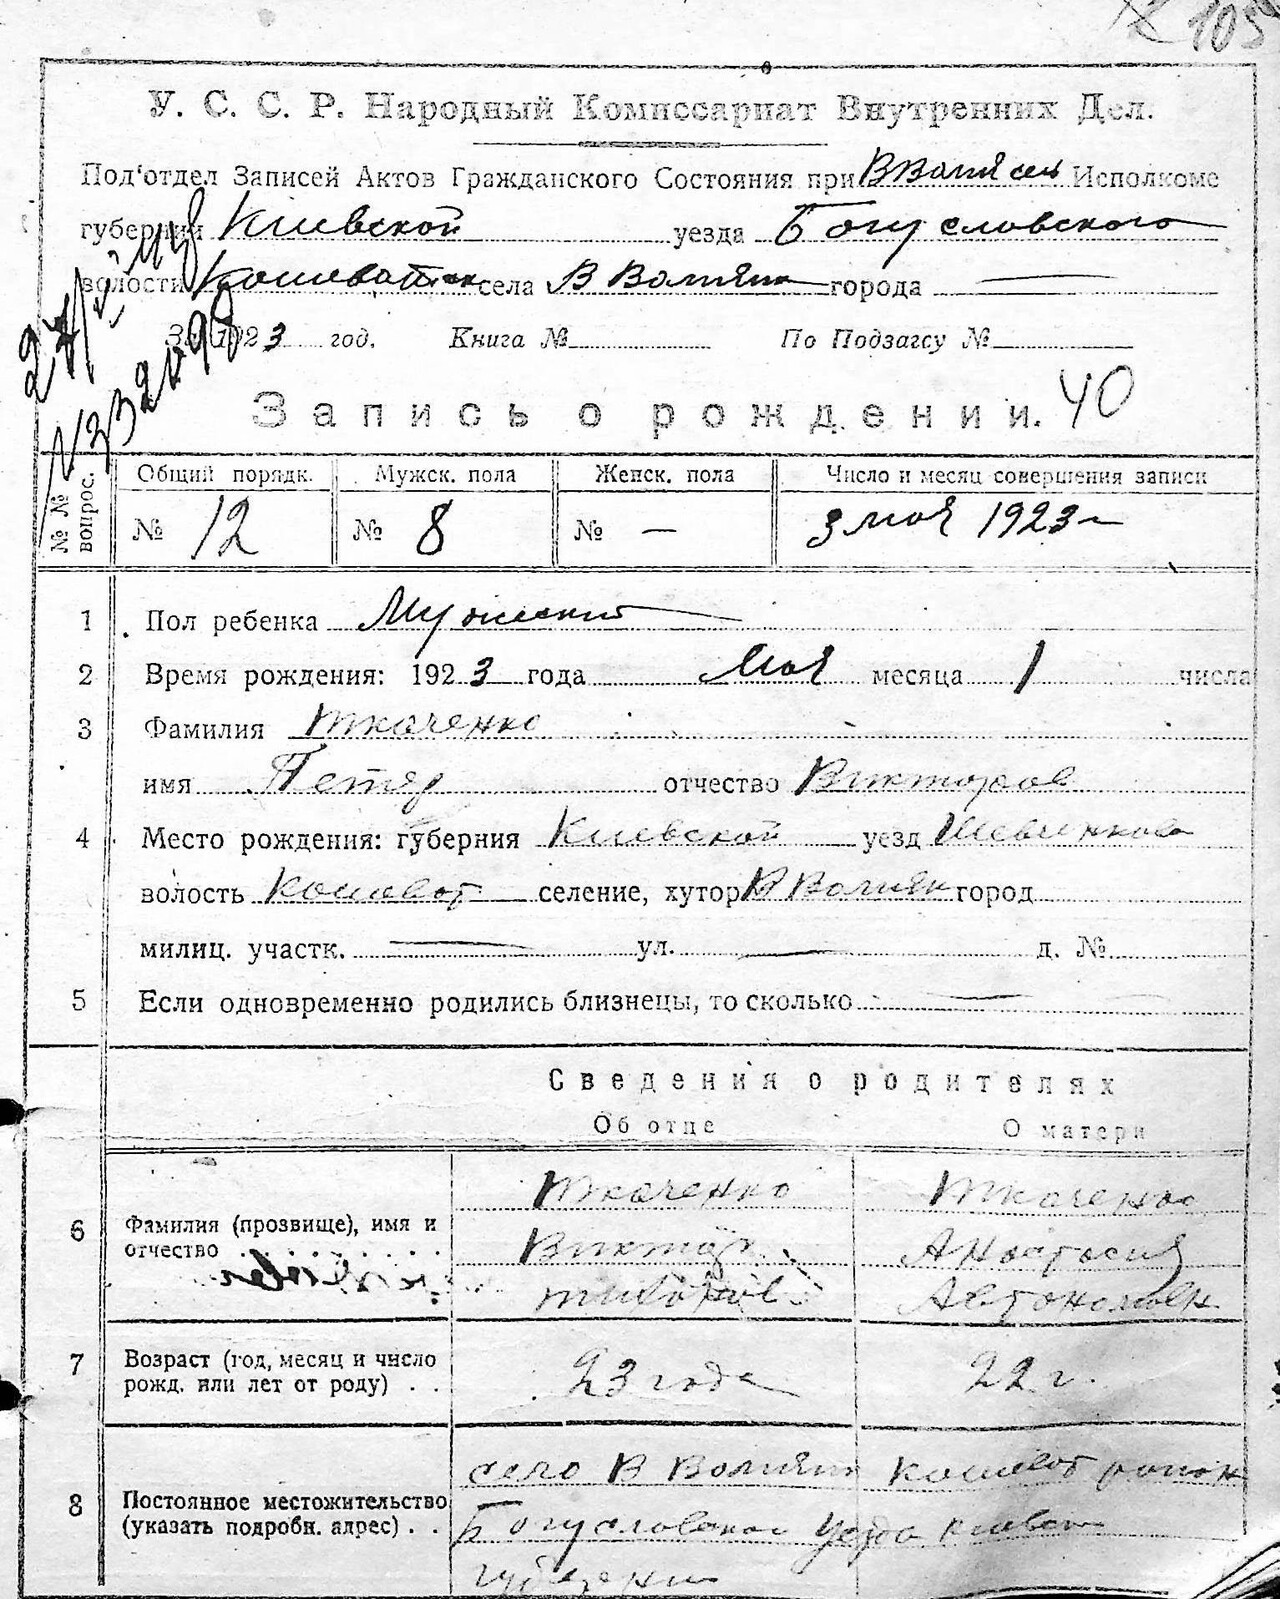 105
У. С. С. Р. Народный Комиссариат Внутренних Дел.
Под'отдел Записей Актов Гражданского Состояния при Исполкоме
губернии Киевской уезда Богуславского
волости села города
За 1923 год. Книга № По Подзагсу №
Запись о рождении. 40
№ № вопрос. Общий порядк. Мужск. пола Женск. пола Число и месяц совершения записи
№ 12 № 8 № — 3 мая 1923
1 Пол ребенка Мужский
2 Время рождения: 1923 года Мая месяца 1 числа
3 Фамилия Ткаченко
имя Петяр отчество Викторов
4 Место рождения: губерния Киевской уезд Шевченков
волость Кошеват селение, хутор город
милиц. участк. — ул. — д. №
5 Если одновременно родились близнецы, то сколько —
Сведения о родителях
Об отце О матери
Ткаченко Ткаченко
6 Фамилия (прозвище), имя и Виктор Анастасия
отчество . . . . . . . . . Тихонов Автономовн
7 Возраст (год, месяц и число 23 года 22 г.
рожд. или лет от роду) . .
село Кошеват район
8 Постоянное местожительство Богуславского уезда Киевск
(указать подробн. адрес) . . губернии